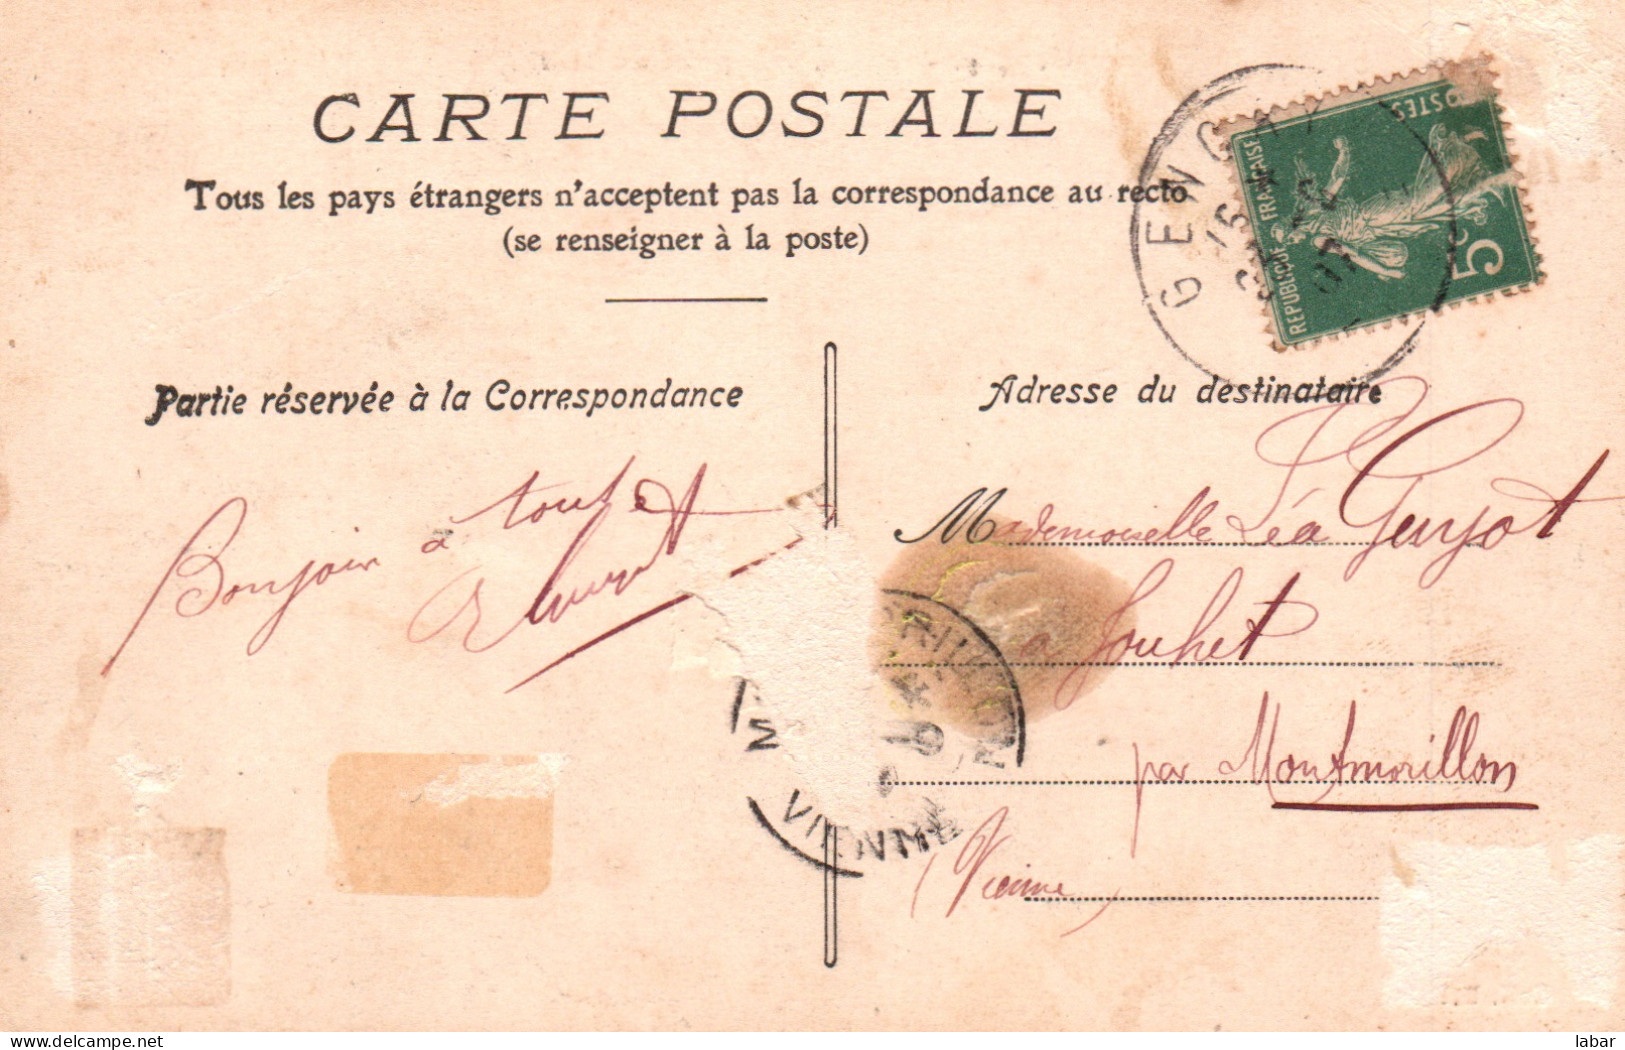 CARTE POSTALE
Tous les pays étrangers n'acceptent pas la correspondance au recto
(se renseigner à la poste)
GENÇAY
RÉPUBLIQUE FRANÇAISE
POSTES
5c
Partie réservée à la Correspondance
Adresse du destinataire
Bonjour à tous et
Mademoiselle Léa Guyot
a Jouhet
par Montmorillon
(Vienne)
M RILLON
VIENNE
www.delcampe.net
labar